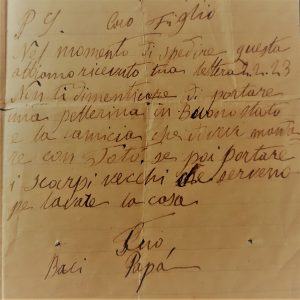 P S. Caro Figlio
Nel momento di spedire questa
abbiamo ricevuto tua lettera 2.2.23
Non ti dimenticare di portare
una pellerina in Buono stato
e la camicia che
re con Stato, se poi portare
i scarpi vecchi che servono
pe lavare la casa
Tuo,
Baci Papá